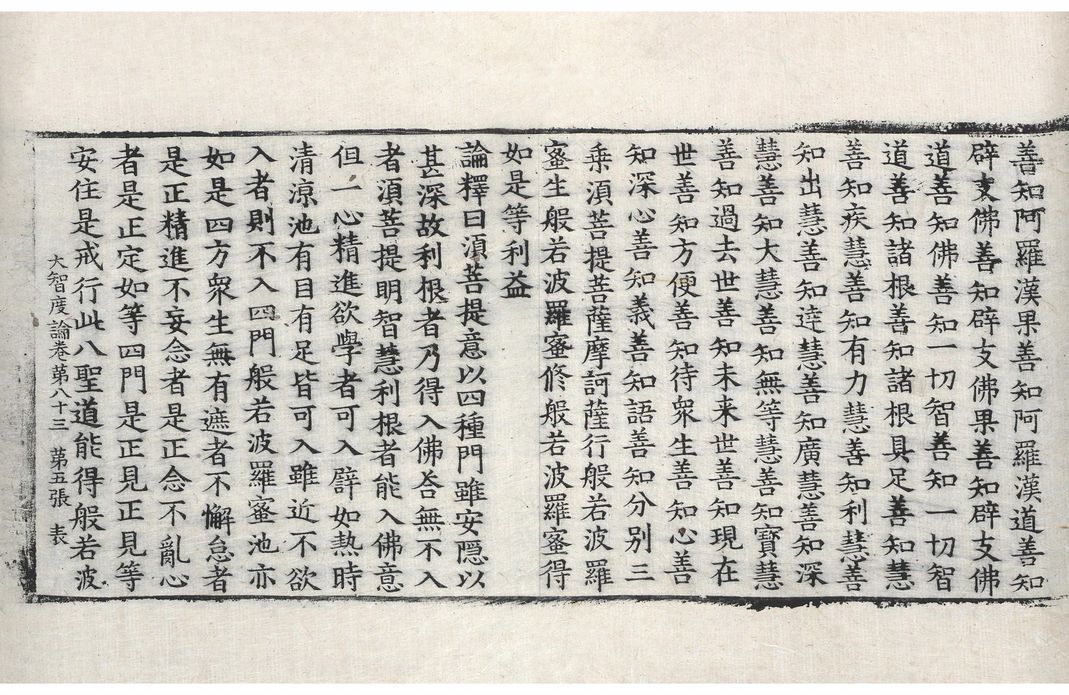 善知阿羅漢果善知阿羅漢道善知
辟支佛善知辟支佛果善知辟支佛
道善知佛善知一切智善知一切智
道善知諸根善知諸根具足善知慧
善知疾慧善知有力慧善知利慧善
知出慧善知達慧善知廣慧善知深
慧善知大慧善知無等慧善知寶慧
善知過去世善知未來世善知現在
世善知方便善知待衆生善知心善
知深心善知義善知語善知分別三
乗湏菩提菩薩摩訶薩行般若波羅
蜜生般若波羅蜜修般若波羅蜜得
如是等利益
論釋曰湏菩提意以四種門雖安隠以
甚深故利根者乃得入佛荅無不入
者湏菩提明智慧利根者能入佛意
但一心精進欲學者可入辟如熱時
清涼池有目有足皆可入雖近不欲
入者則不入四門般若波羅蜜池亦
如是四方衆生無有遮者不懈怠者
是正精進不妄念者是正念不亂心
者是正定如等四門是正見正見等
安住是戒行此八聖道能得般若波
大智度論卷第八十三　第五張　表